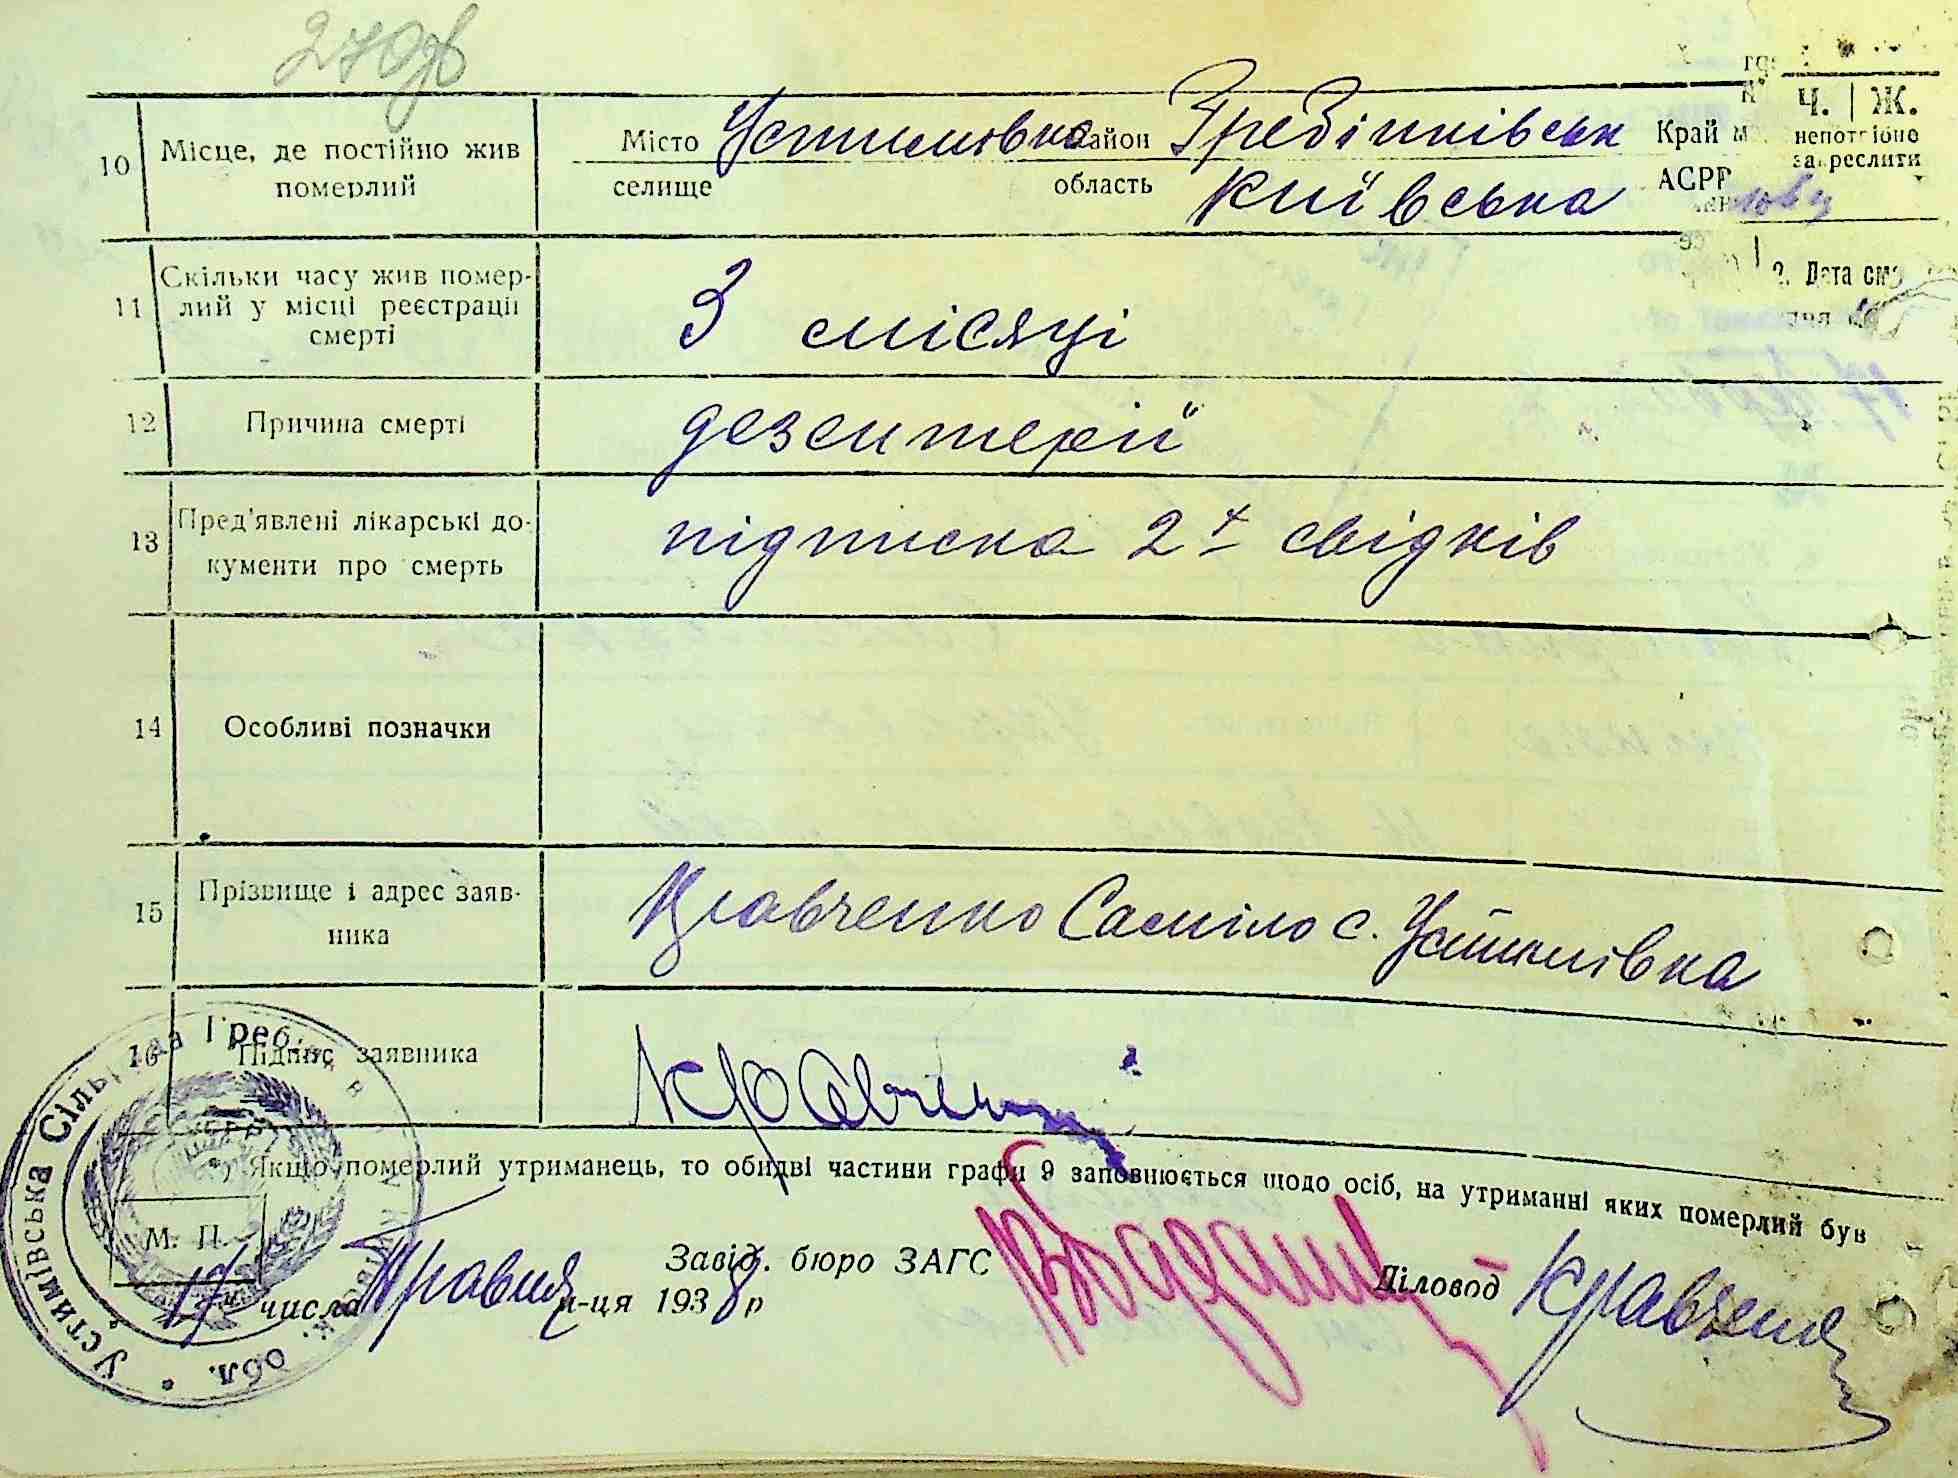 270зв
10 Місце, де постійно жив Місто Устимівка район Гребінківськ Край
померлий селище область Київська АСРР
Ч. | Ж.
непотрібно
закреслити
11 Скільки часу жив помер-
лий у місці реєстрації 3 місяці
смерті
2. Дата
12 Причина смерті дезентерії
13 Пред'явлені лікарські до- підписка 2х свідків
кументи про смерть
14 Особливі позначки
15 Прізвище і адрес заяв- Кравченко Саміло с. Устимівка
ника
16 Підпис заявника Кравченко
*) Якщо померлий утриманець, то обидві частини графи 9 заповнюється щодо осіб, на утриманні яких померлий був
М. П.
Завід. бюро ЗАГС Діловод Кравченко
17 числа Травня м-ця 1938 р
Устимівська Сільрада Греб. обл.